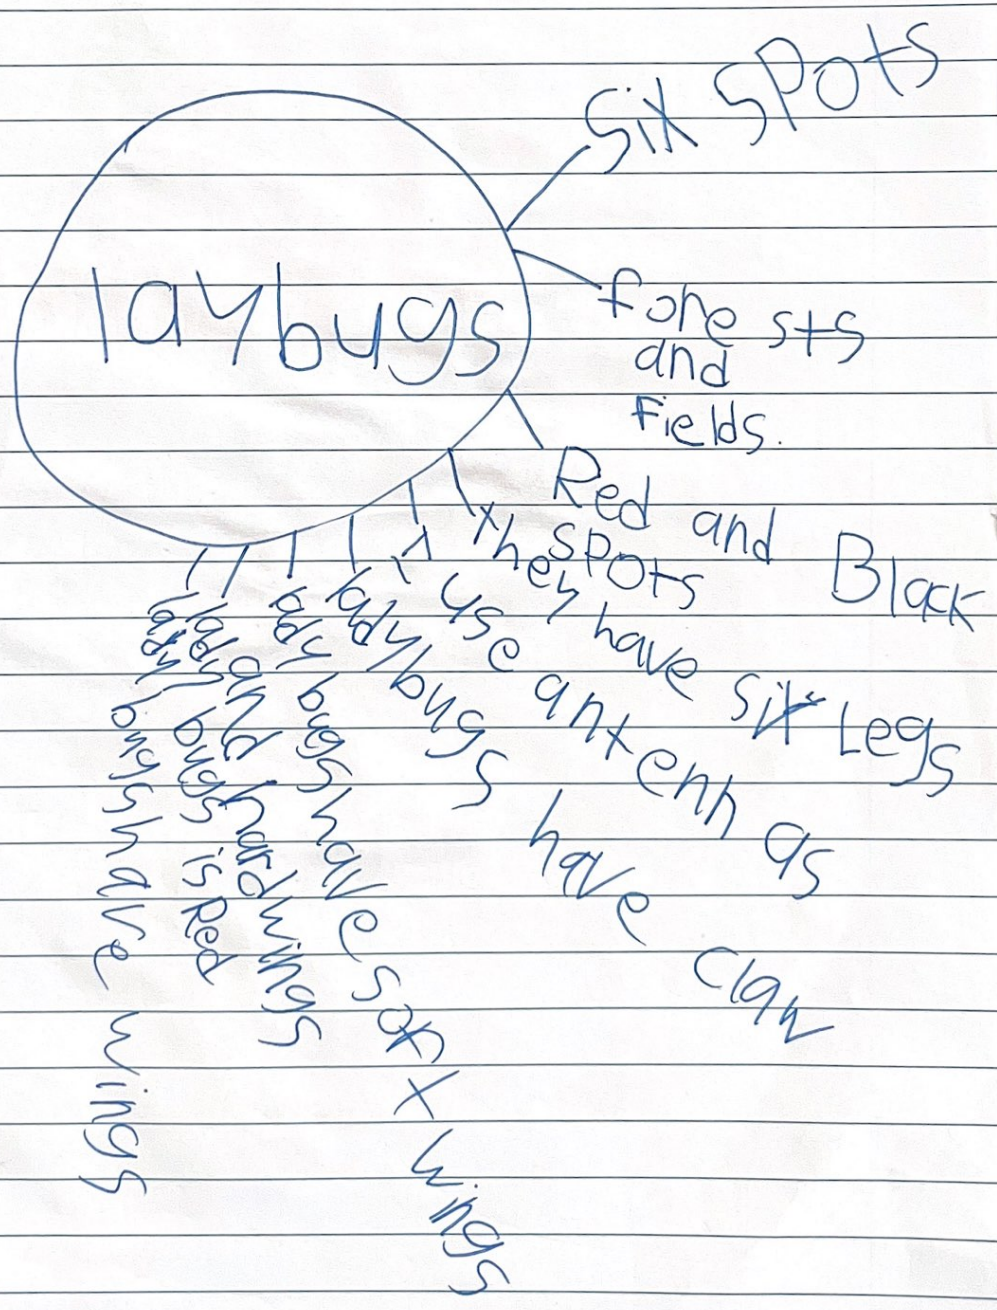 laybugs
Six Spots
forests
and
Fields.
Red and Black
Spots
they have six Legs
I use antennas
ladybugs have claw
lady bugs have soft wings
and hard wings
lady bugs is Red
lady bugs have wings